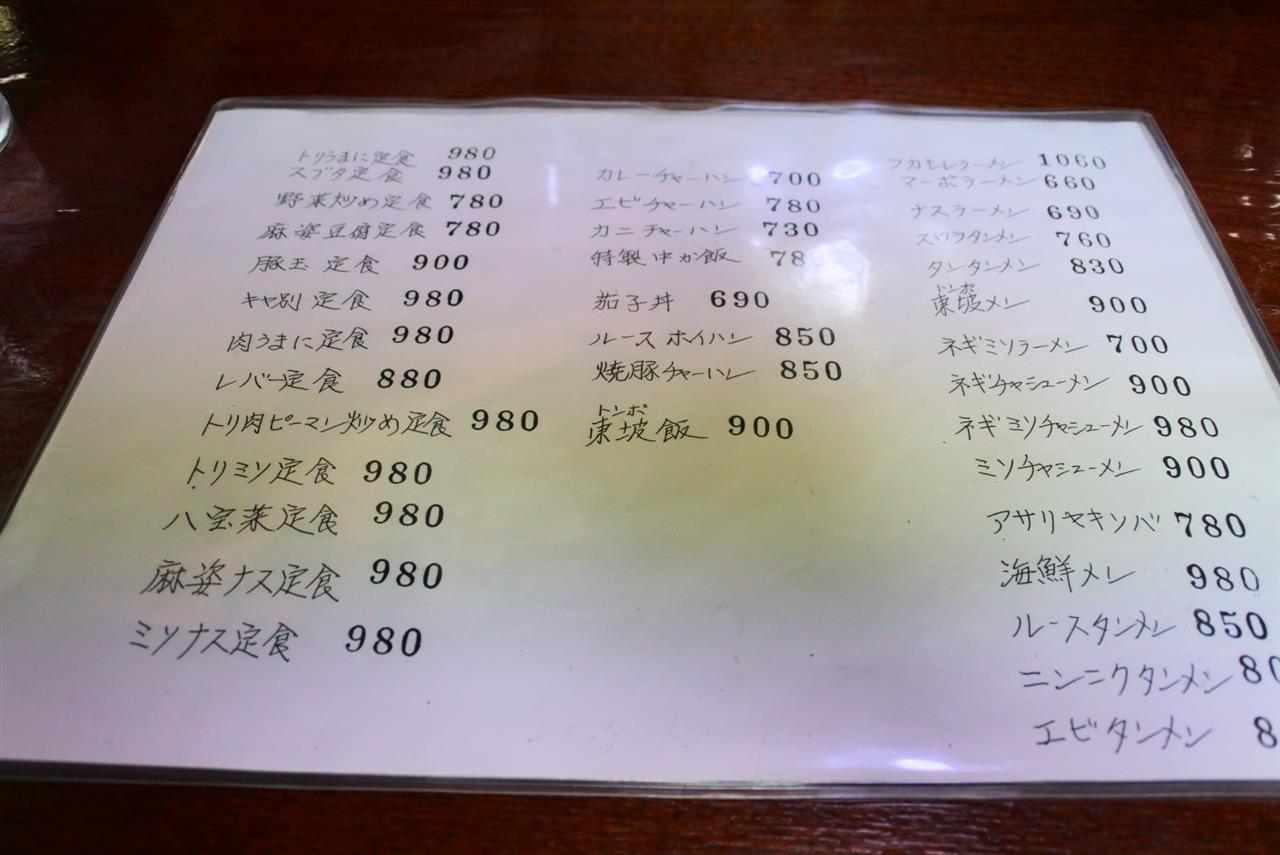 トリうまに定食 980
スブタ定食 980
野菜炒め定食 780
麻婆豆腐定食 780
豚玉 定食 900
キャ別 定食 980
肉うまに定食 980
レバー定食 880
トリ肉ピーマン炒め定食 980
トリミソ定食 980
八宝菜定食 980
麻婆ナス定食 980
ミソナス定食 980
カレーチャーハン 700
エビチャーハン 780
カニチャーハン 730
特製中か飯 780
茄子丼 690
ルースホイハン 850
焼豚チャーハン 850
トンポ
東坡飯 900
フカヒレラーメン 1060
マーボラーメン 660
ナスラーメン 690
スワラタンメン 760
タンタンメン 830
トンポ
東坡メン 900
ネギミソラーメン 700
ネギチャシューメン 900
ネギミソチャシューメン 980
ミソチャシューメン 900
アサリヤキソバ 780
海鮮メン 980
ルースタンメン 850
ニンニクタンメン
エビタンメン